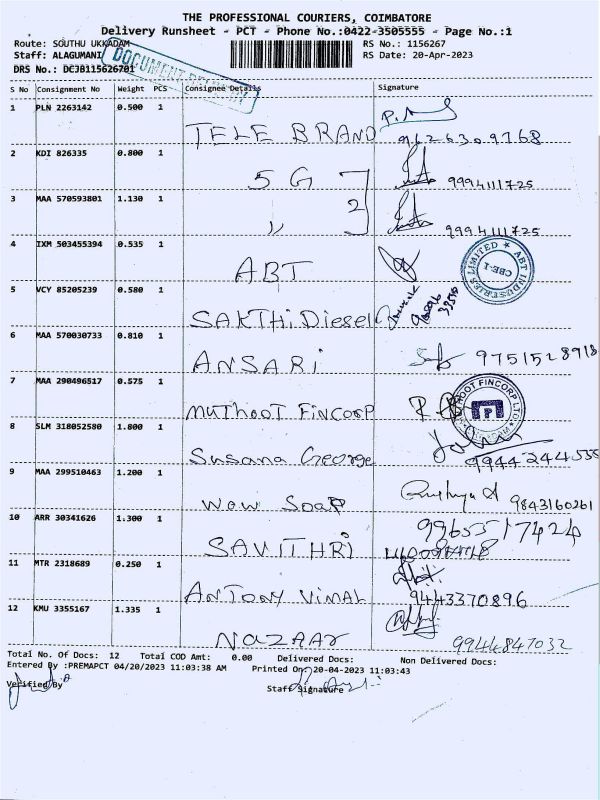 THE PROFESSIONAL COURIERS, COIMBATORE
Delivery Runsheet - PCT - Phone No.:0422-3505555 - Page No.:1
Route: SOUTHU UKKADAM RS No.: 1156267
Staff: ALAGUMANI RS Date: 20-Apr-2023
DRS No.: DCJB115626701
DOCUMENT DELIVERY
S No Consignment No Weight PCS Consignee Details Signature
1 PLN 2263142 0.500 1
TELE BRAND 9626309768
2 KDI 826335 0.800 1
5 G 9994111725
3 MAA 570593801 1.130 1 2
,, 9994111725
4 IXM 503455394 0.535 1
ABT
ABT INDUSTRIES LIMITED
CBE-1
5 VCY 85205239 0.580 1
SAKTHi Diesel
6 MAA 570030733 0.810 1
ANSARi 9751528918
7 MAA 290496517 0.575 1
MUTHOOT FINCORP
FINCORP LTD
8 SLM 318052580 1.800 1
Susana George 9944244535
9 MAA 299510463 1.200 1
wow Soap 9843160261
10 ARR 30341626 1.300 1 9965517424
SAVITHRI
11 MTR 2318689 0.250 1
ANTONY VIMAL 9443370896
12 KMU 3355167 1.335 1
NAZAAR 9944847032
Total No. Of Docs: 12 Total COD Amt: 0.00 Delivered Docs: Non Delivered Docs:
Entered By :PREMAPCT 04/20/2023 11:03:38 AM Printed On: 20-04-2023 11:03:43
Verified By Staff Signature